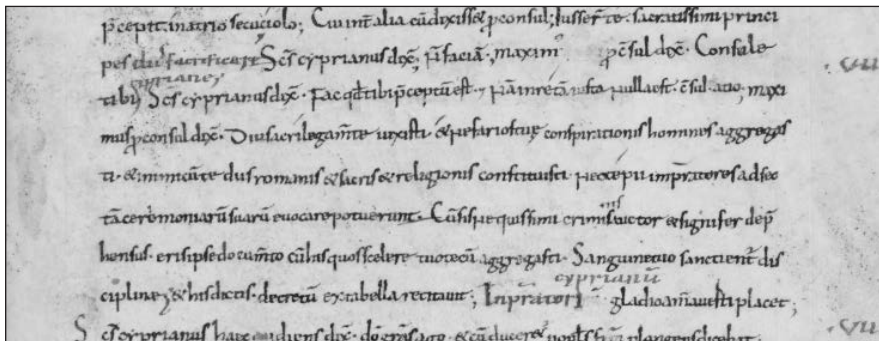 p̄cepit in atrio secuciolo; Cui int alia cū dixisset p̄consul; Iusser te sacratissimi princi
pes diis sacrificare; Scs cyprianus dix̄; N̄ faciā. maxim᷒ p̄c̄sul dix̄. Consule
cypriane
tibi; Scs cyprianus dix̄. Fac qd tibi p̄ceptū est. In re tā iusta nulla est c̄sul tatio; maxi
mus p̄consul dix̄. Diu sacrilega m̄te uixisti. & nefario tuę conspirationis homines aggregas
ti. & inimicū te diis romanis & sacris & religionis constituisti. nec te pii imp̄ratores ad sec
tā ceremoniarū suarū euocare potuerunt. Cū sis nequissimi criminis auctor & signifer dep̄
hensus. eris ipse documt̄o cū his quos scelere tuo tecū aggregasti. Sanguine tuo sancient̄ dis
cipline; & his dictis. decretū ex tabella recitauit;
cyprianū
gladio aīaduerti placet;
Scs cyprianus haec audiens dix̄. dō grās ago. & cū duceret̄